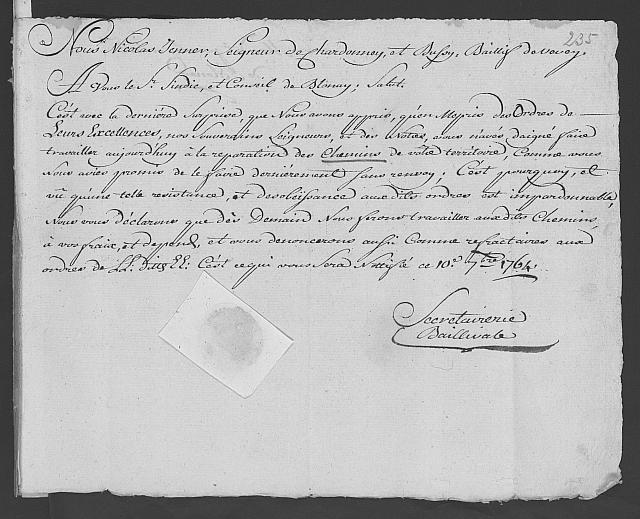 235
Nous Nicolas Jenner, Seigneur de Chardonney, et Bussy, Baillif de Vevey,
A Vous le Sr. Sindic, et Conseil de Blonay, Salut.
C'est avec la derniére Surprise, que Nous avons appris, qu'en Mépris des Ordres de
Leurs Excellences, nos Souverains Seigneurs, et des Notres, vous n'avés daigné faire
travailler aujourd'huy à la reparation des Chemins de vôtre territoire, Comme vous
Nous aviés promis de le faire derniérement sans renvoy; C'est pourquoy, et
vû qu'une telle resistance, et desobéissance auxdits ordres est impardonnable,
Nous vous déclarons que dès Demain Nous ferons travailler auxdits Chemins,
à vos fraix, et depend, et vous denoncerons aussi Comme refractaires aux
ordres de LL. dittes EE: C'est ce qui vous sera Notifié ce 10e. 7bre 1764.
Secretairerie
Baillivale